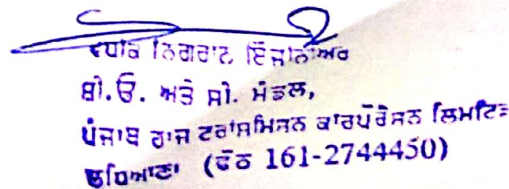 ਵਧੀਕ ਨਿਗਰਾਨ ਇੰਜਨੀਅਰ
ਬੀ.ਓ. ਅਤੇ ਸੀ. ਮੰਡਲ,
ਪੰਜਾਬ ਰਾਜ ਟਰਾਂਸਮਿਸਨ ਕਾਰਪੋਰੇਸਨ ਲਿਮਟਿਡ
ਲੁਧਿਆਣਾ (ਫੋਨ 161-2744450)